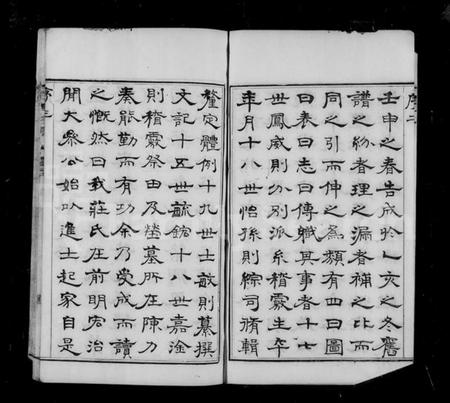 壬申之春告成於乙亥之冬舊
譜之紛者理之漏者補之比而
同之引而伸之為類有四曰圖
曰表曰志曰傳職其事者十七
世鳳威則分別派系稽覈生卒
年月十八世怡孫則綜司脩輯
釐定體例十九世士敏則纂撰
文記十五世毓鋐十八世嘉淦
則稽覈祭田及塋墓所在陳乃
秦能勤而有功余乃受成而讀
之慨然曰我莊氏在前明宏治
聞大參公始以進士起家自是